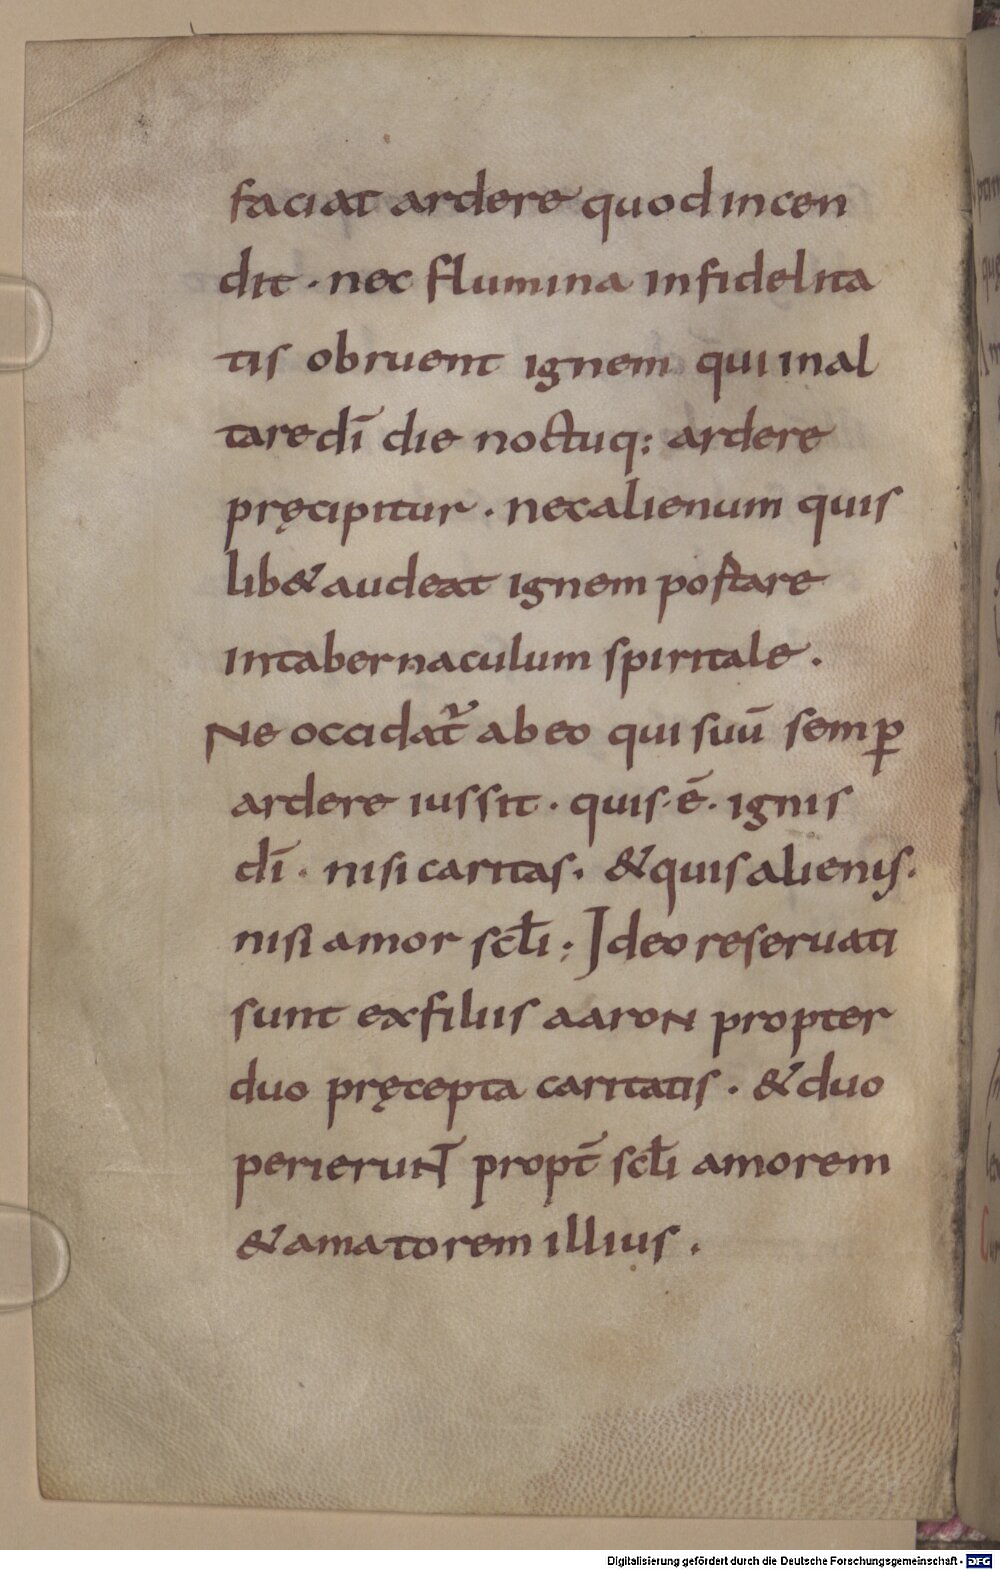 faciat ardere quod incen
dit · nec flumina infidelita
tis obruent ignem qui in al
tare dī die noctuq; ardere
pręcipitur · nec alienum quis
lib& audeat ignem postare
in tabernaculum spiritale .
Ne occidat᷑ ab eo qui suū semꝑ
ardere iussit · quis · ē · ignis
dī · nisi caritas · & quis alienis ·
nisi amor scłi ; Ideo reseruati
sunt ex filiis aaroN propter
duo pręcepta caritatis · & duo
perieruNT propt̄ scłi amorem
& amatorem illius .
Digitalisierung gefördert durch die Deutsche Forschungsgemeinschaft - DFG